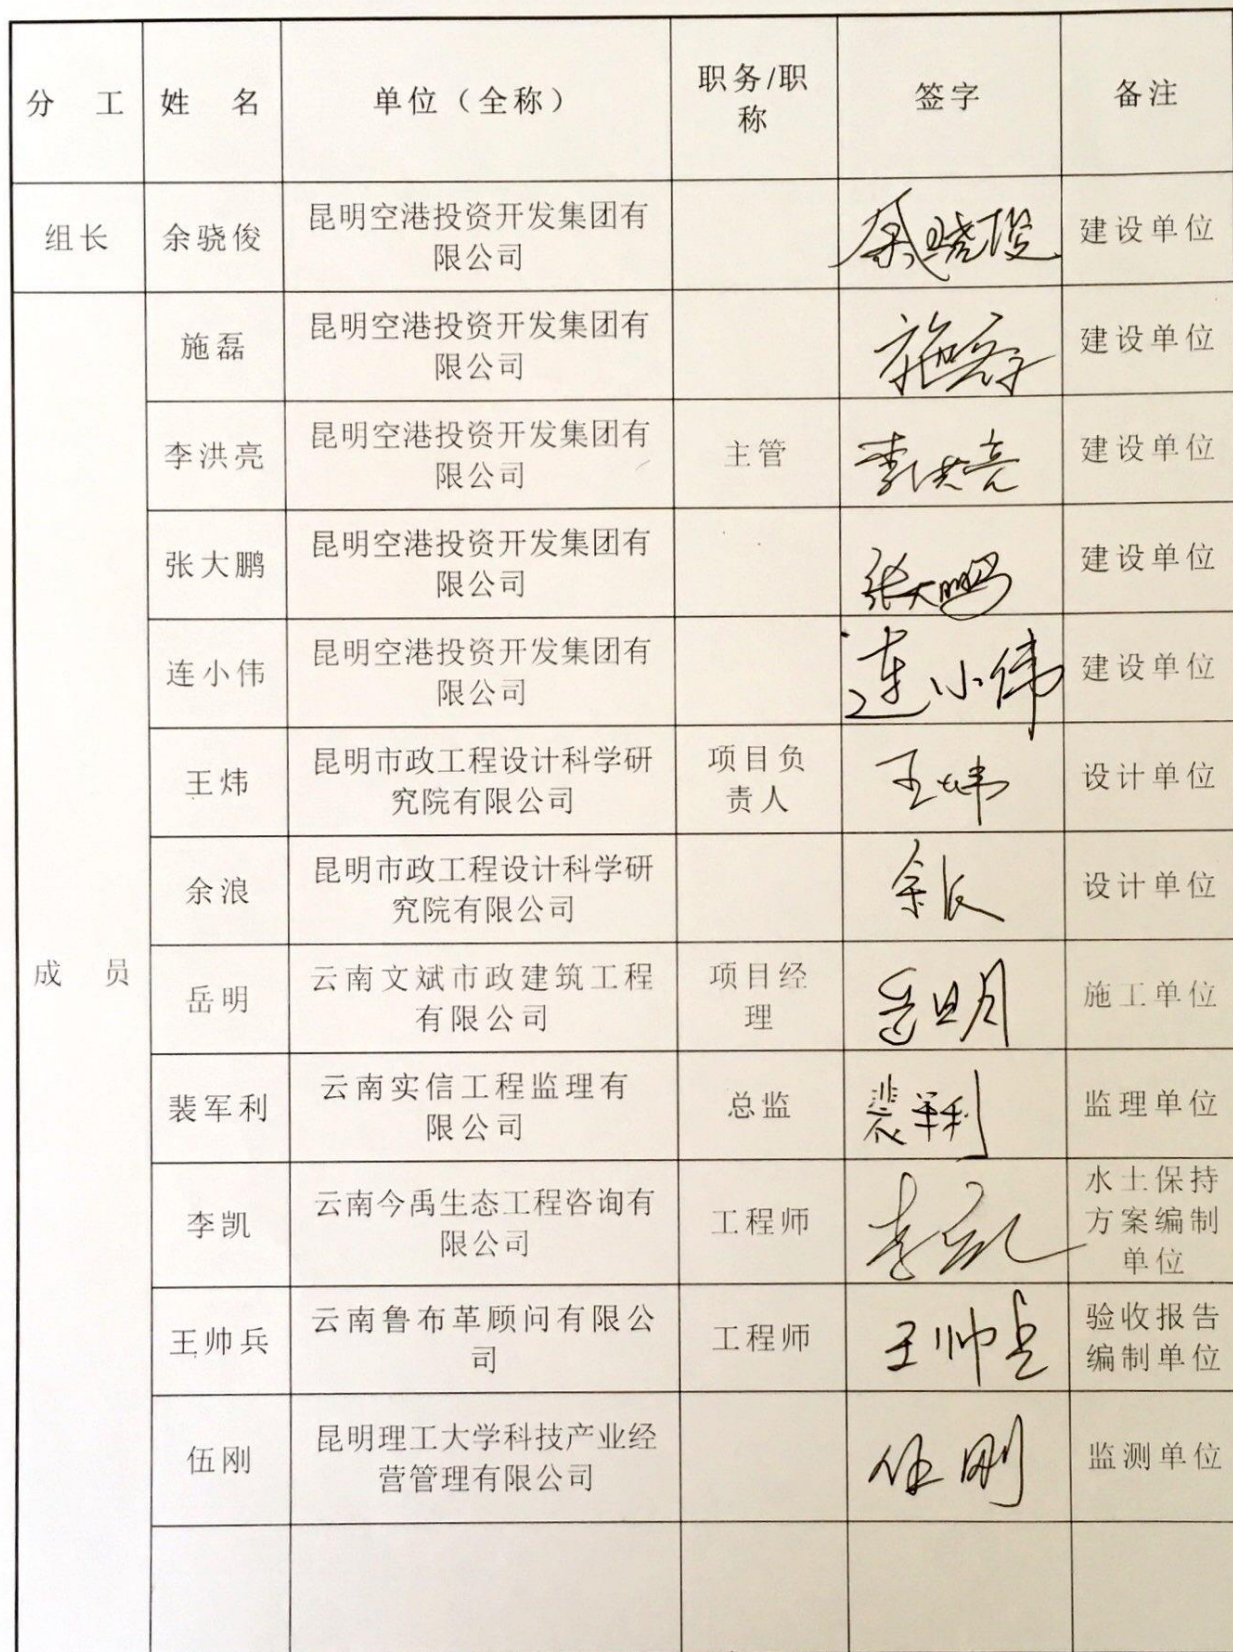 分 工 姓 名 单位（全称） 职务/职称 签字 备注
组长 余骁俊 昆明空港投资开发集团有限公司 余骁俊 建设单位
成 员
施磊 昆明空港投资开发集团有限公司 建设单位
李洪亮 昆明空港投资开发集团有限公司 主管 李洪亮 建设单位
张大鹏 昆明空港投资开发集团有限公司 张大鹏 建设单位
连小伟 昆明空港投资开发集团有限公司 连小伟 建设单位
王炜 昆明市政工程设计科学研究院有限公司 项目负责人 王炜 设计单位
余浪 昆明市政工程设计科学研究院有限公司 余浪 设计单位
岳明 云南文斌市政建筑工程有限公司 项目经理 岳明 施工单位
裴军利 云南实信工程监理有限公司 总监 裴军利 监理单位
李凯 云南今禹生态工程咨询有限公司 工程师 李凯 水土保持方案编制单位
王帅兵 云南鲁布革顾问有限公司 工程师 王帅兵 验收报告编制单位
伍刚 昆明理工大学科技产业经营管理有限公司 伍刚 监测单位